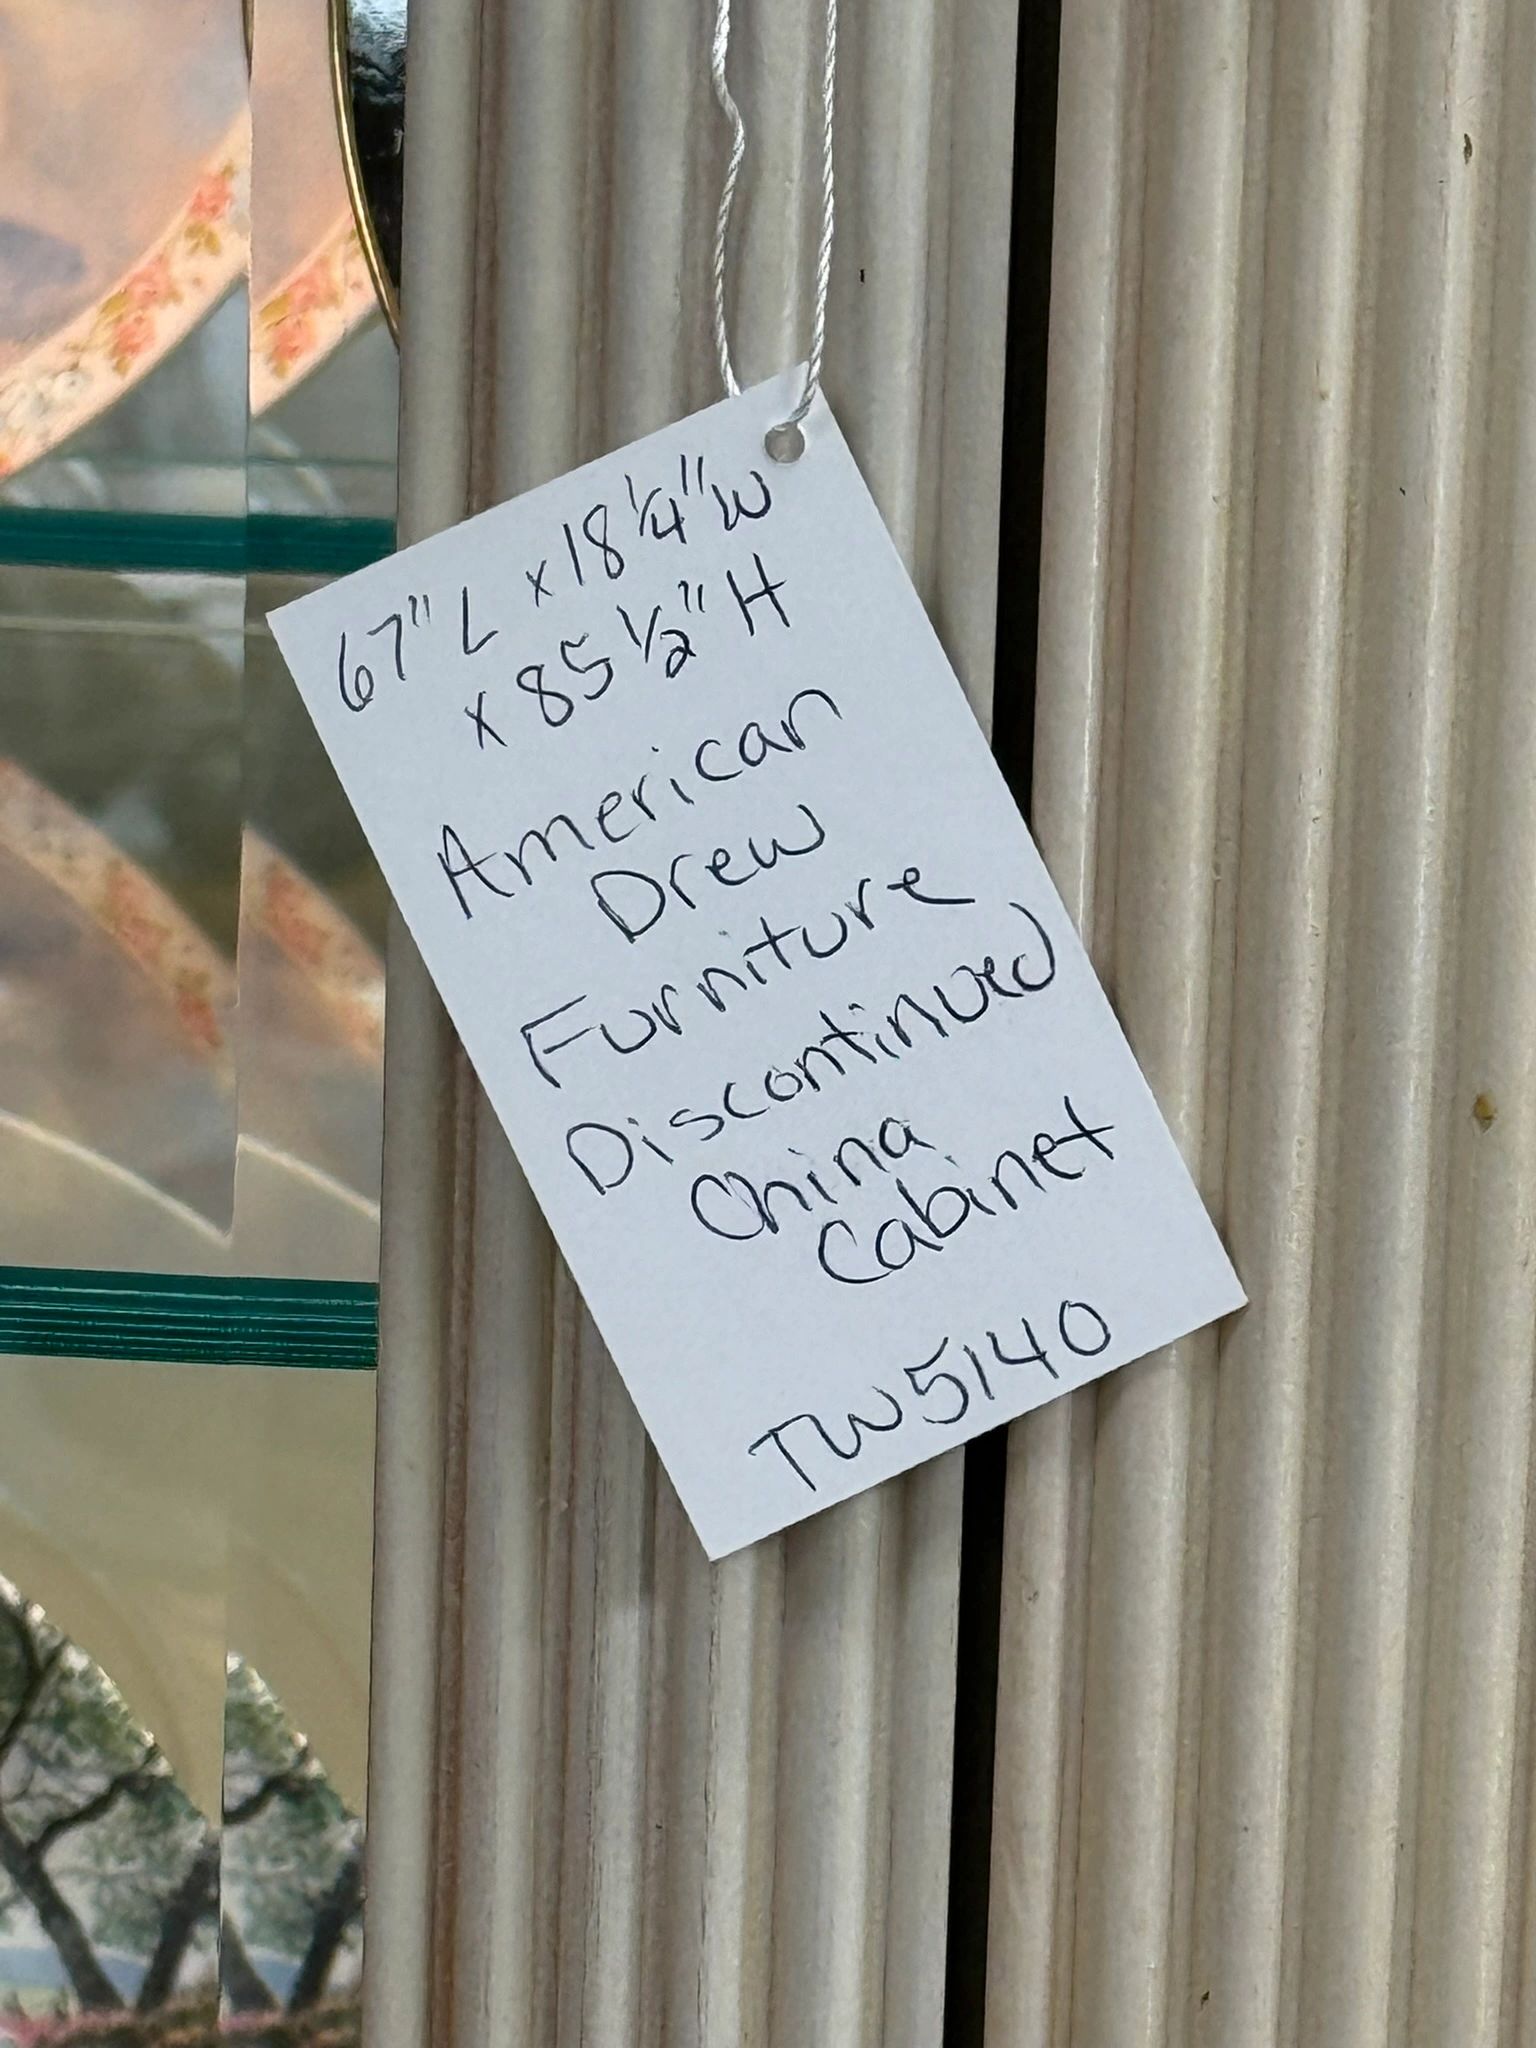 67" L x 18 1/4" W
x 85 1/2" H
American
Drew
Furniture
Discontinued
China
Cabinet
TW5140